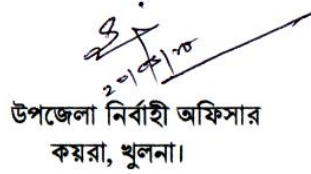 উপজেলা নির্বাহী অফিসার
কয়রা, খুলনা।